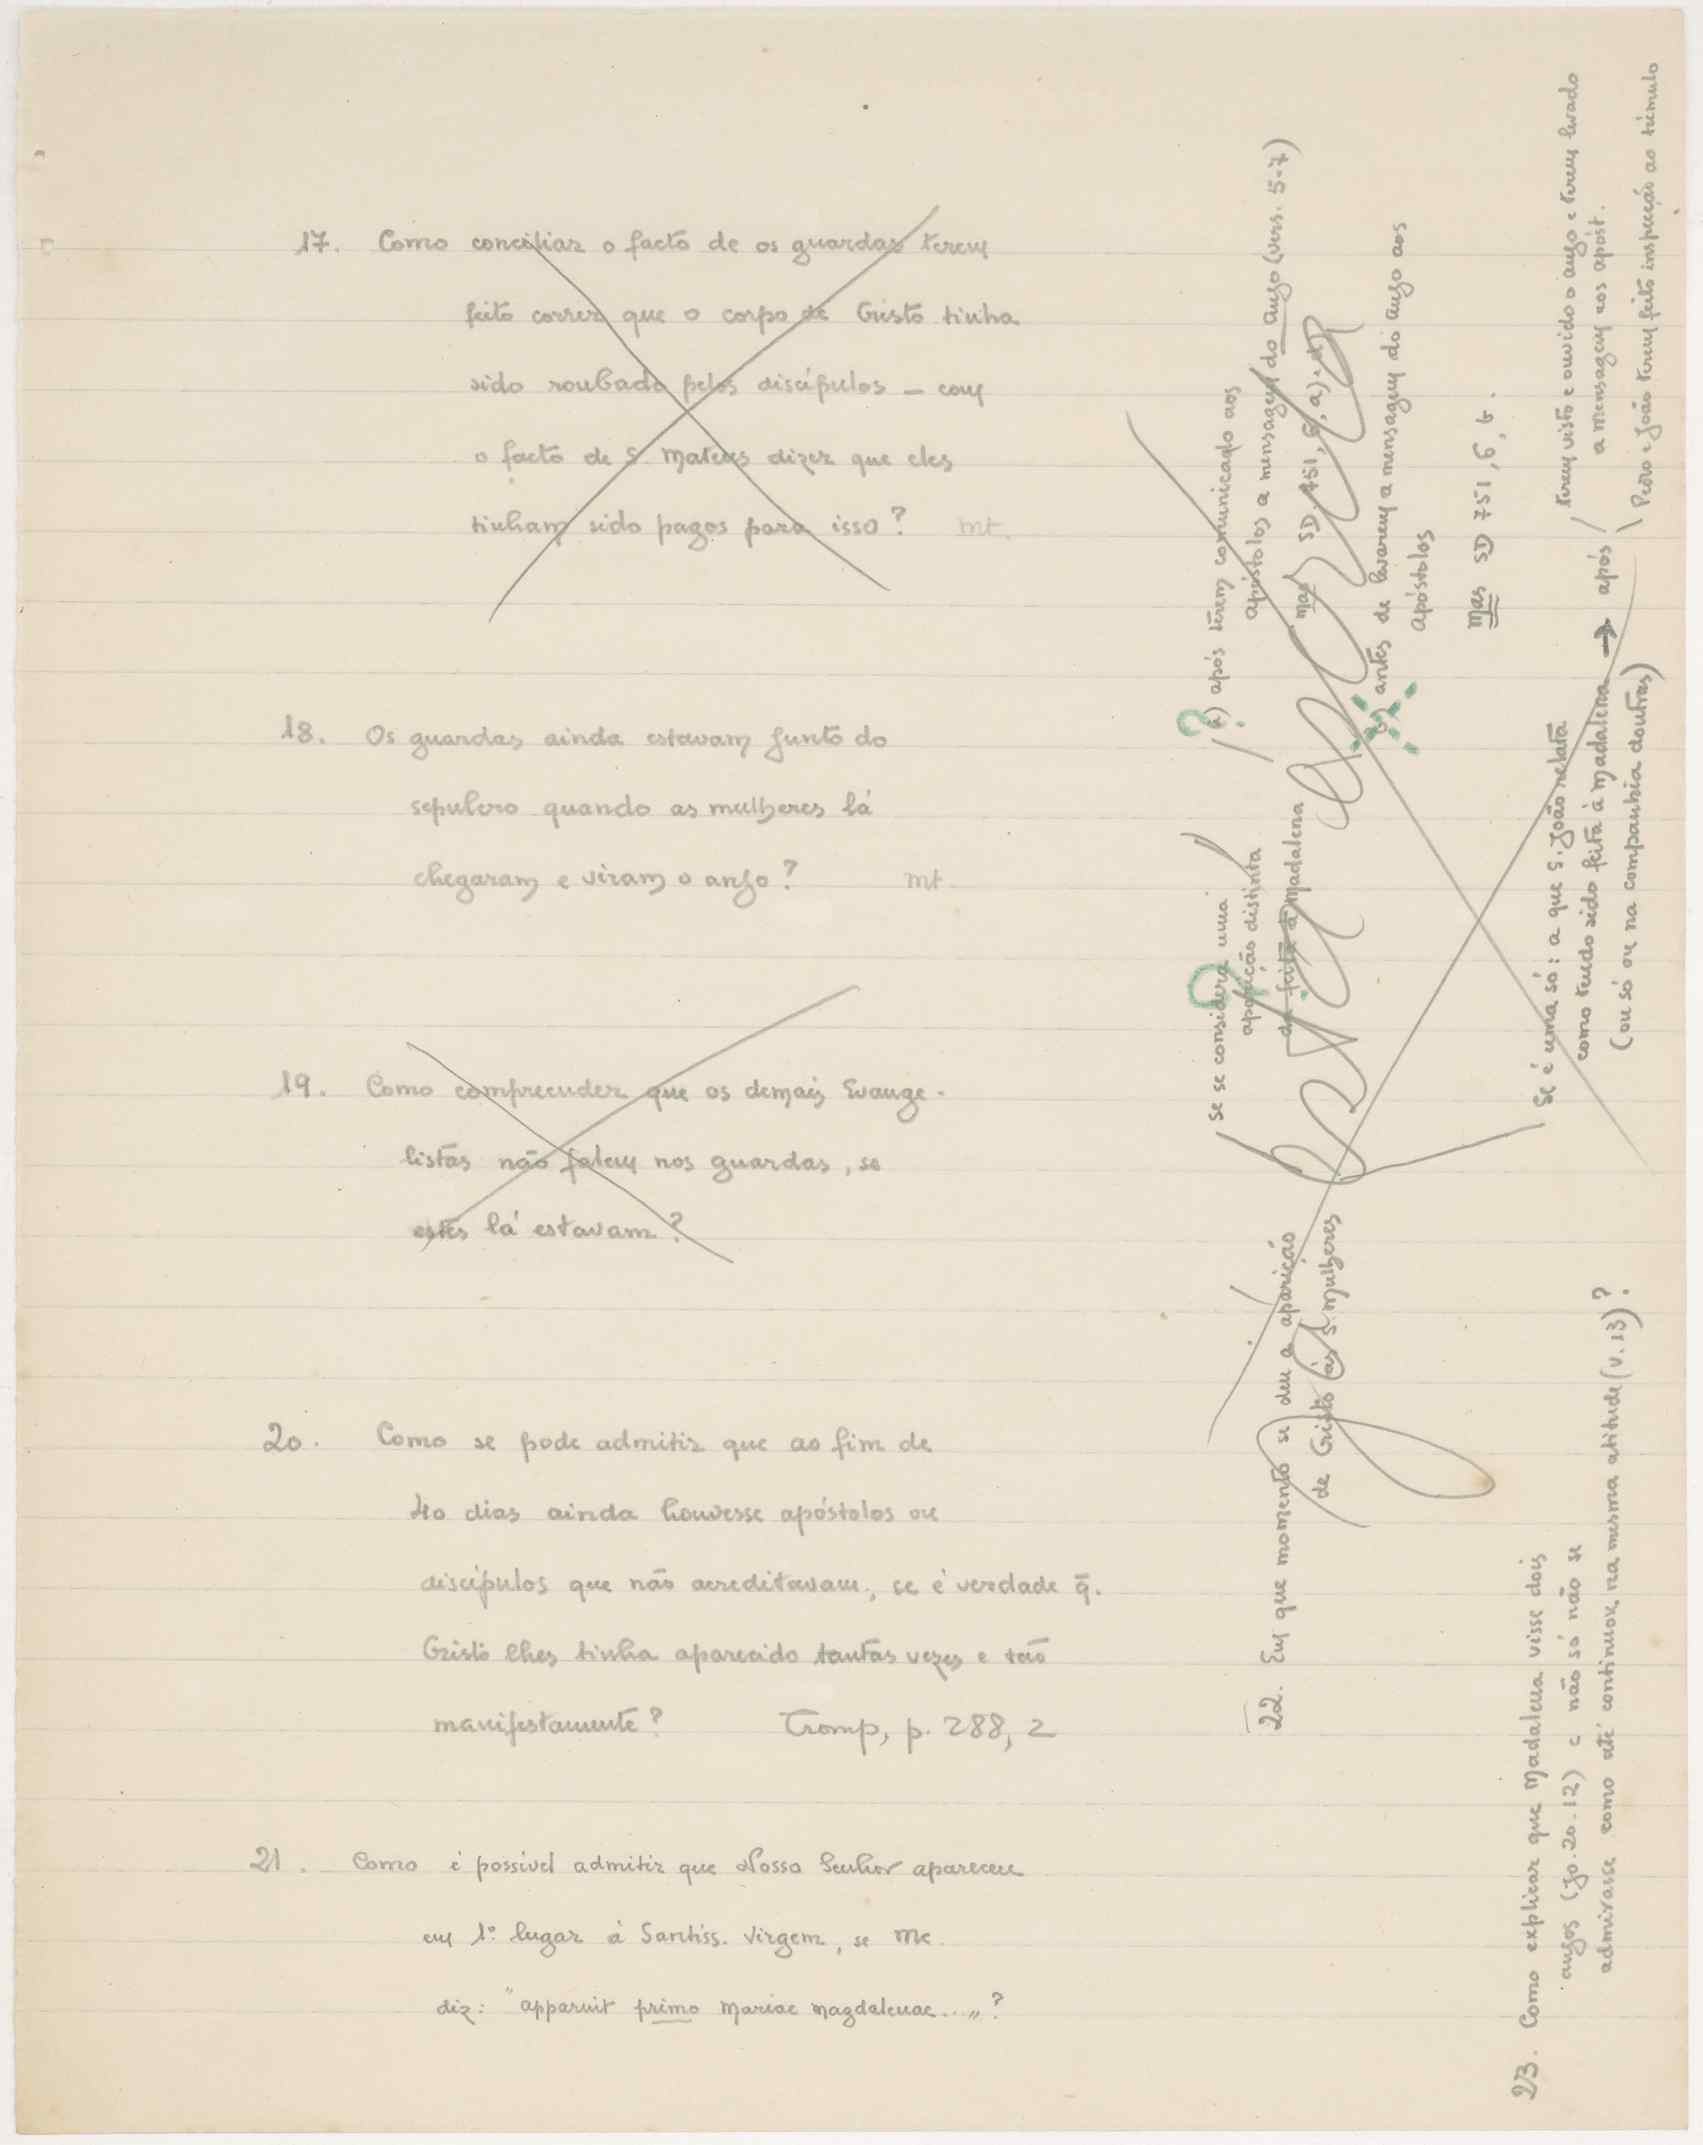 17. Como conciliar o facto de os guardas terem
feito correr que o corpo de Cristo tinha
sido roubado pelos discípulos – com
o facto de S. Mateus dizer que eles
tinham sido pagos para isso? Mt.
18. Os guardas ainda estavam junto do
sepulcro quando as mulheres lá
chegaram e viram o anjo? Mt.
19. Como compreender que os demais Evange-
listas não falem nos guardas, se
estes lá estavam?
20. Como se pode admitir que ao fim de
40 dias ainda houvesse apóstolos ou
discípulos que não acreditavam, se é verdade q̄.
Cristo lhes tinha aparecido tantas vezes e tão
manifestamente? Tromp, p. 288, 2
21. Como é possível admitir que Nosso Senhor apareceu
em 1º lugar à Santíss. Virgem, se Mc.
diz: "apparuit primo Mariae Magdalenae..."?
22. Em que momento se deu a aparição
de Cristo às S. Mulheres
se se considera uma
aparição distinta
da feita a Madalena
a) após terem comunicado aos
apóstolos a mensagem do anjo (vers. 5-7)
mas SD. 751, 6, a).
b) antes de levarem a mensagem do anjo aos
apóstolos
mas SD 751, 6, b.
Se é uma só: a que S. João relata
como tendo sido feita à Madalena → após
(ou só ou na companhia doutras)
terem visto e ouvido o anjo e terem levado
a mensagem aos apóst.
Pedro e João terem feito inspecção ao túmulo
23. Como explicar que Madalena visse dois
anjos (Jo. 20.12) e não só não se
admirasse como até continuou na mesma atitude (v. 13)?